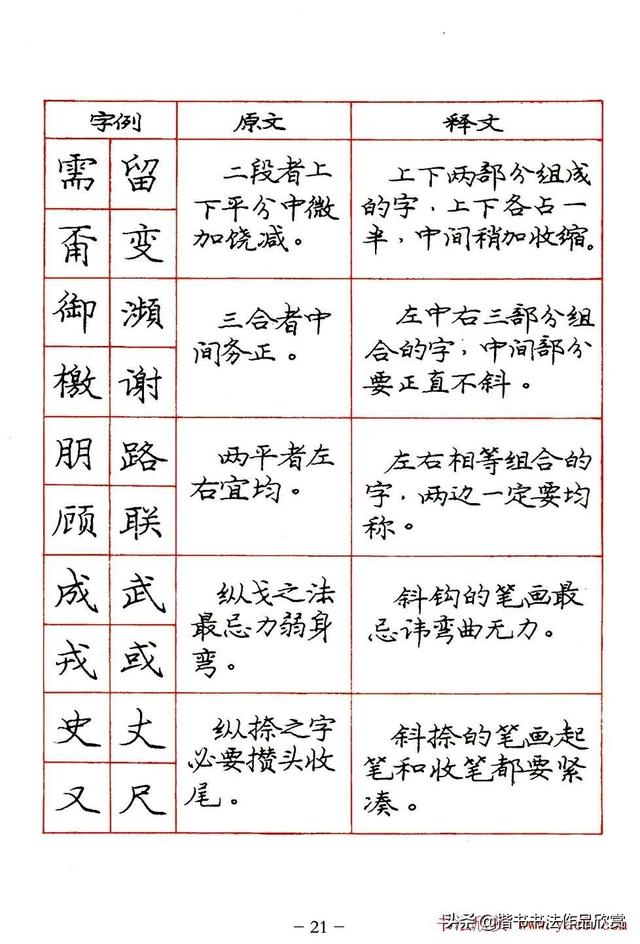 字例 原文 释文
需 留
变
二段者上
下平分中微
加饶减。
上下两部分组成
的字，上下各占一
半，中间稍加收缩。
御 瀕
檄 谢
三合者中
间务正。
左中右三部分组
合的字，中间部分
要正直不斜。
朋 路
顾 联
两平者左
右宜均。
左右相等组合的
字，两边一定要均
称。
成 武
戎 或
纵戈之法
最忌力弱身
弯。
斜钩的笔画最
忌讳弯曲无力。
史 丈
又 尺
纵捺之字
必要攒头收
尾。
斜捺的笔画起
笔和收笔都要紧
凑。
- 21 -
头条@楷书书法作品欣赏